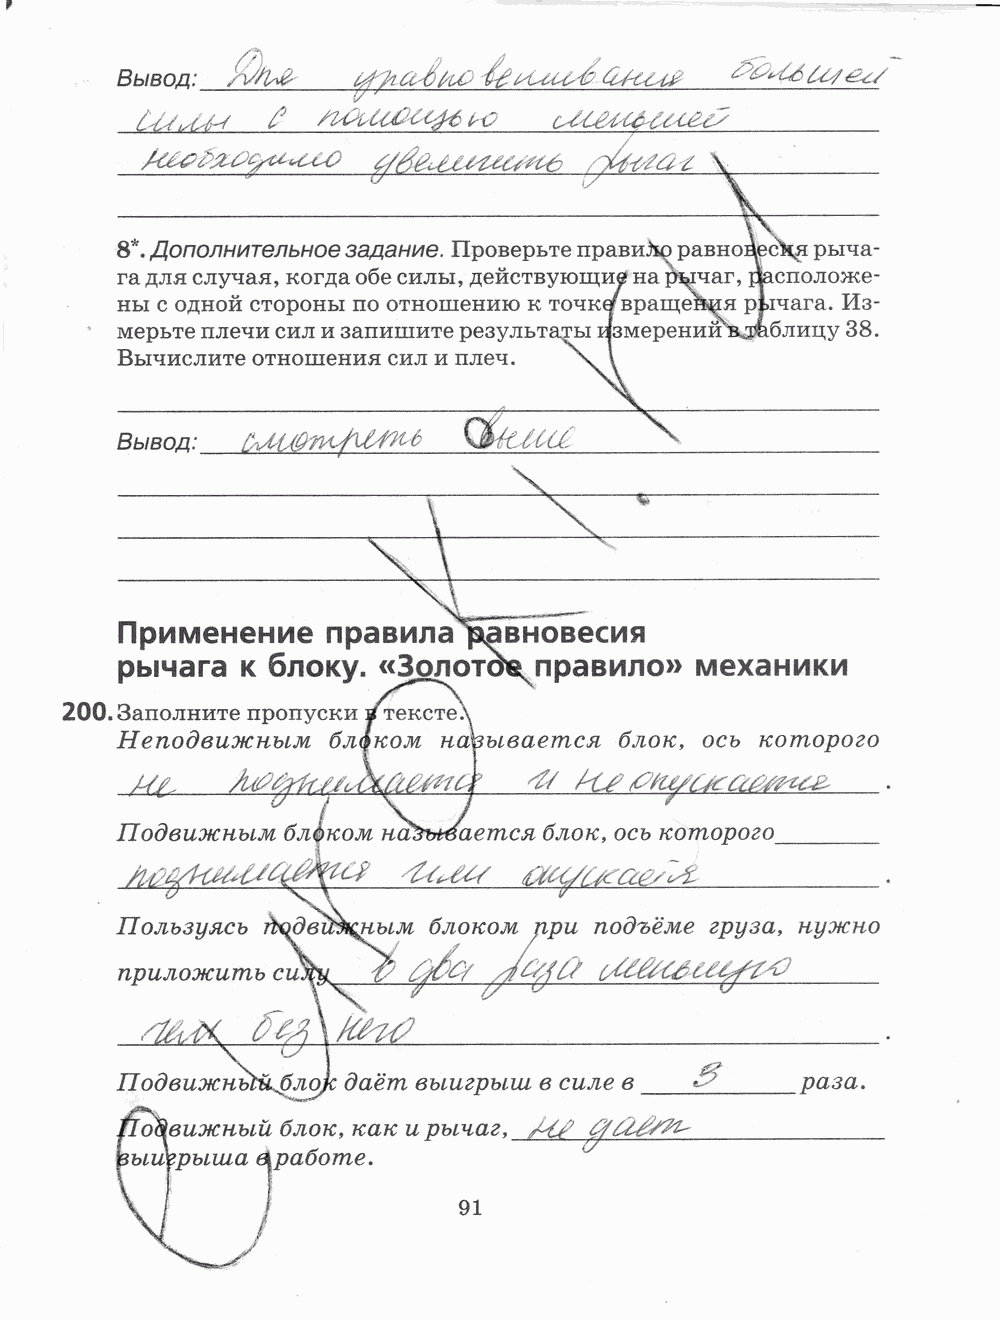 Вывод: Для уравновешивания большей
силы с помощью меньшей
необходимо увеличить рычаг
8*. Дополнительное задание. Проверьте правило равновесия рыча-
га для случая, когда обе силы, действующие на рычаг, расположе-
ны с одной стороны по отношению к точке вращения рычага. Из-
мерьте плечи сил и запишите результаты измерений в таблицу 38.
Вычислите отношения сил и плеч.
Вывод: смотреть выше
Применение правила равновесия
рычага к блоку. «Золотое правило» механики
200. Заполните пропуски в тексте.
Неподвижным блоком называется блок, ось которого
не поднимается и не опускается.
Подвижным блоком называется блок, ось которого
поднимается или опускается.
Пользуясь подвижным блоком при подъёме груза, нужно
приложить силу в два раза меньшую
чем без него.
Подвижный блок даёт выигрыш в силе в 3 раза.
Подвижный блок, как и рычаг, не дает
выигрыша в работе.
91